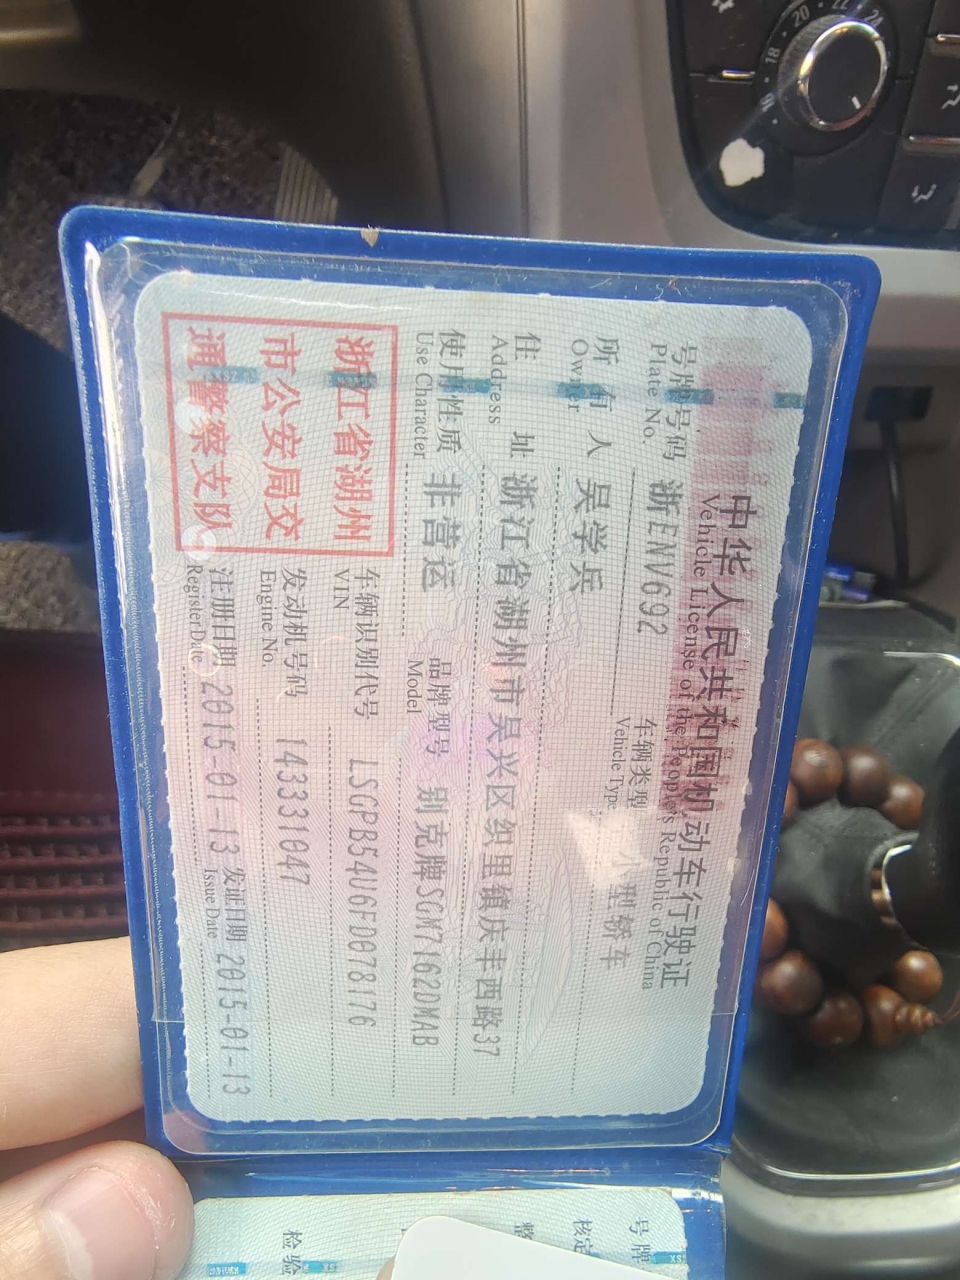 中华人民共和国机动车行驶证
Vehicle License of the People's Republic of China
号牌号码 浙ENV692 车辆类型 小型轿车
Plate No. Vehicle Type
所有人 吴学兵
Owner
住址 浙江省湖州市吴兴区织里镇庆丰西路37
Address
使用性质 非营运 品牌型号 别克牌SGM7162DMAB
Use Character Model
车辆识别代号 LSGPB54U6FD078176
VIN
发动机号码 143331047
Engine No.
注册日期 2015-01-13 发证日期 2015-01-13
Register Date Issue Date
浙江省湖州
市公安局交
通警察支队
号牌
核定
整
检验
18 20 22 24